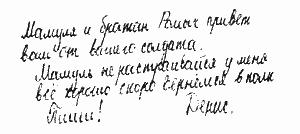 Мамуля и братан Ромыч привет
вам от вашего солдата.
Мамуль не расстраивайся у меня
всё хорошо скоро вернёмся в полк
Пиши! Денис.